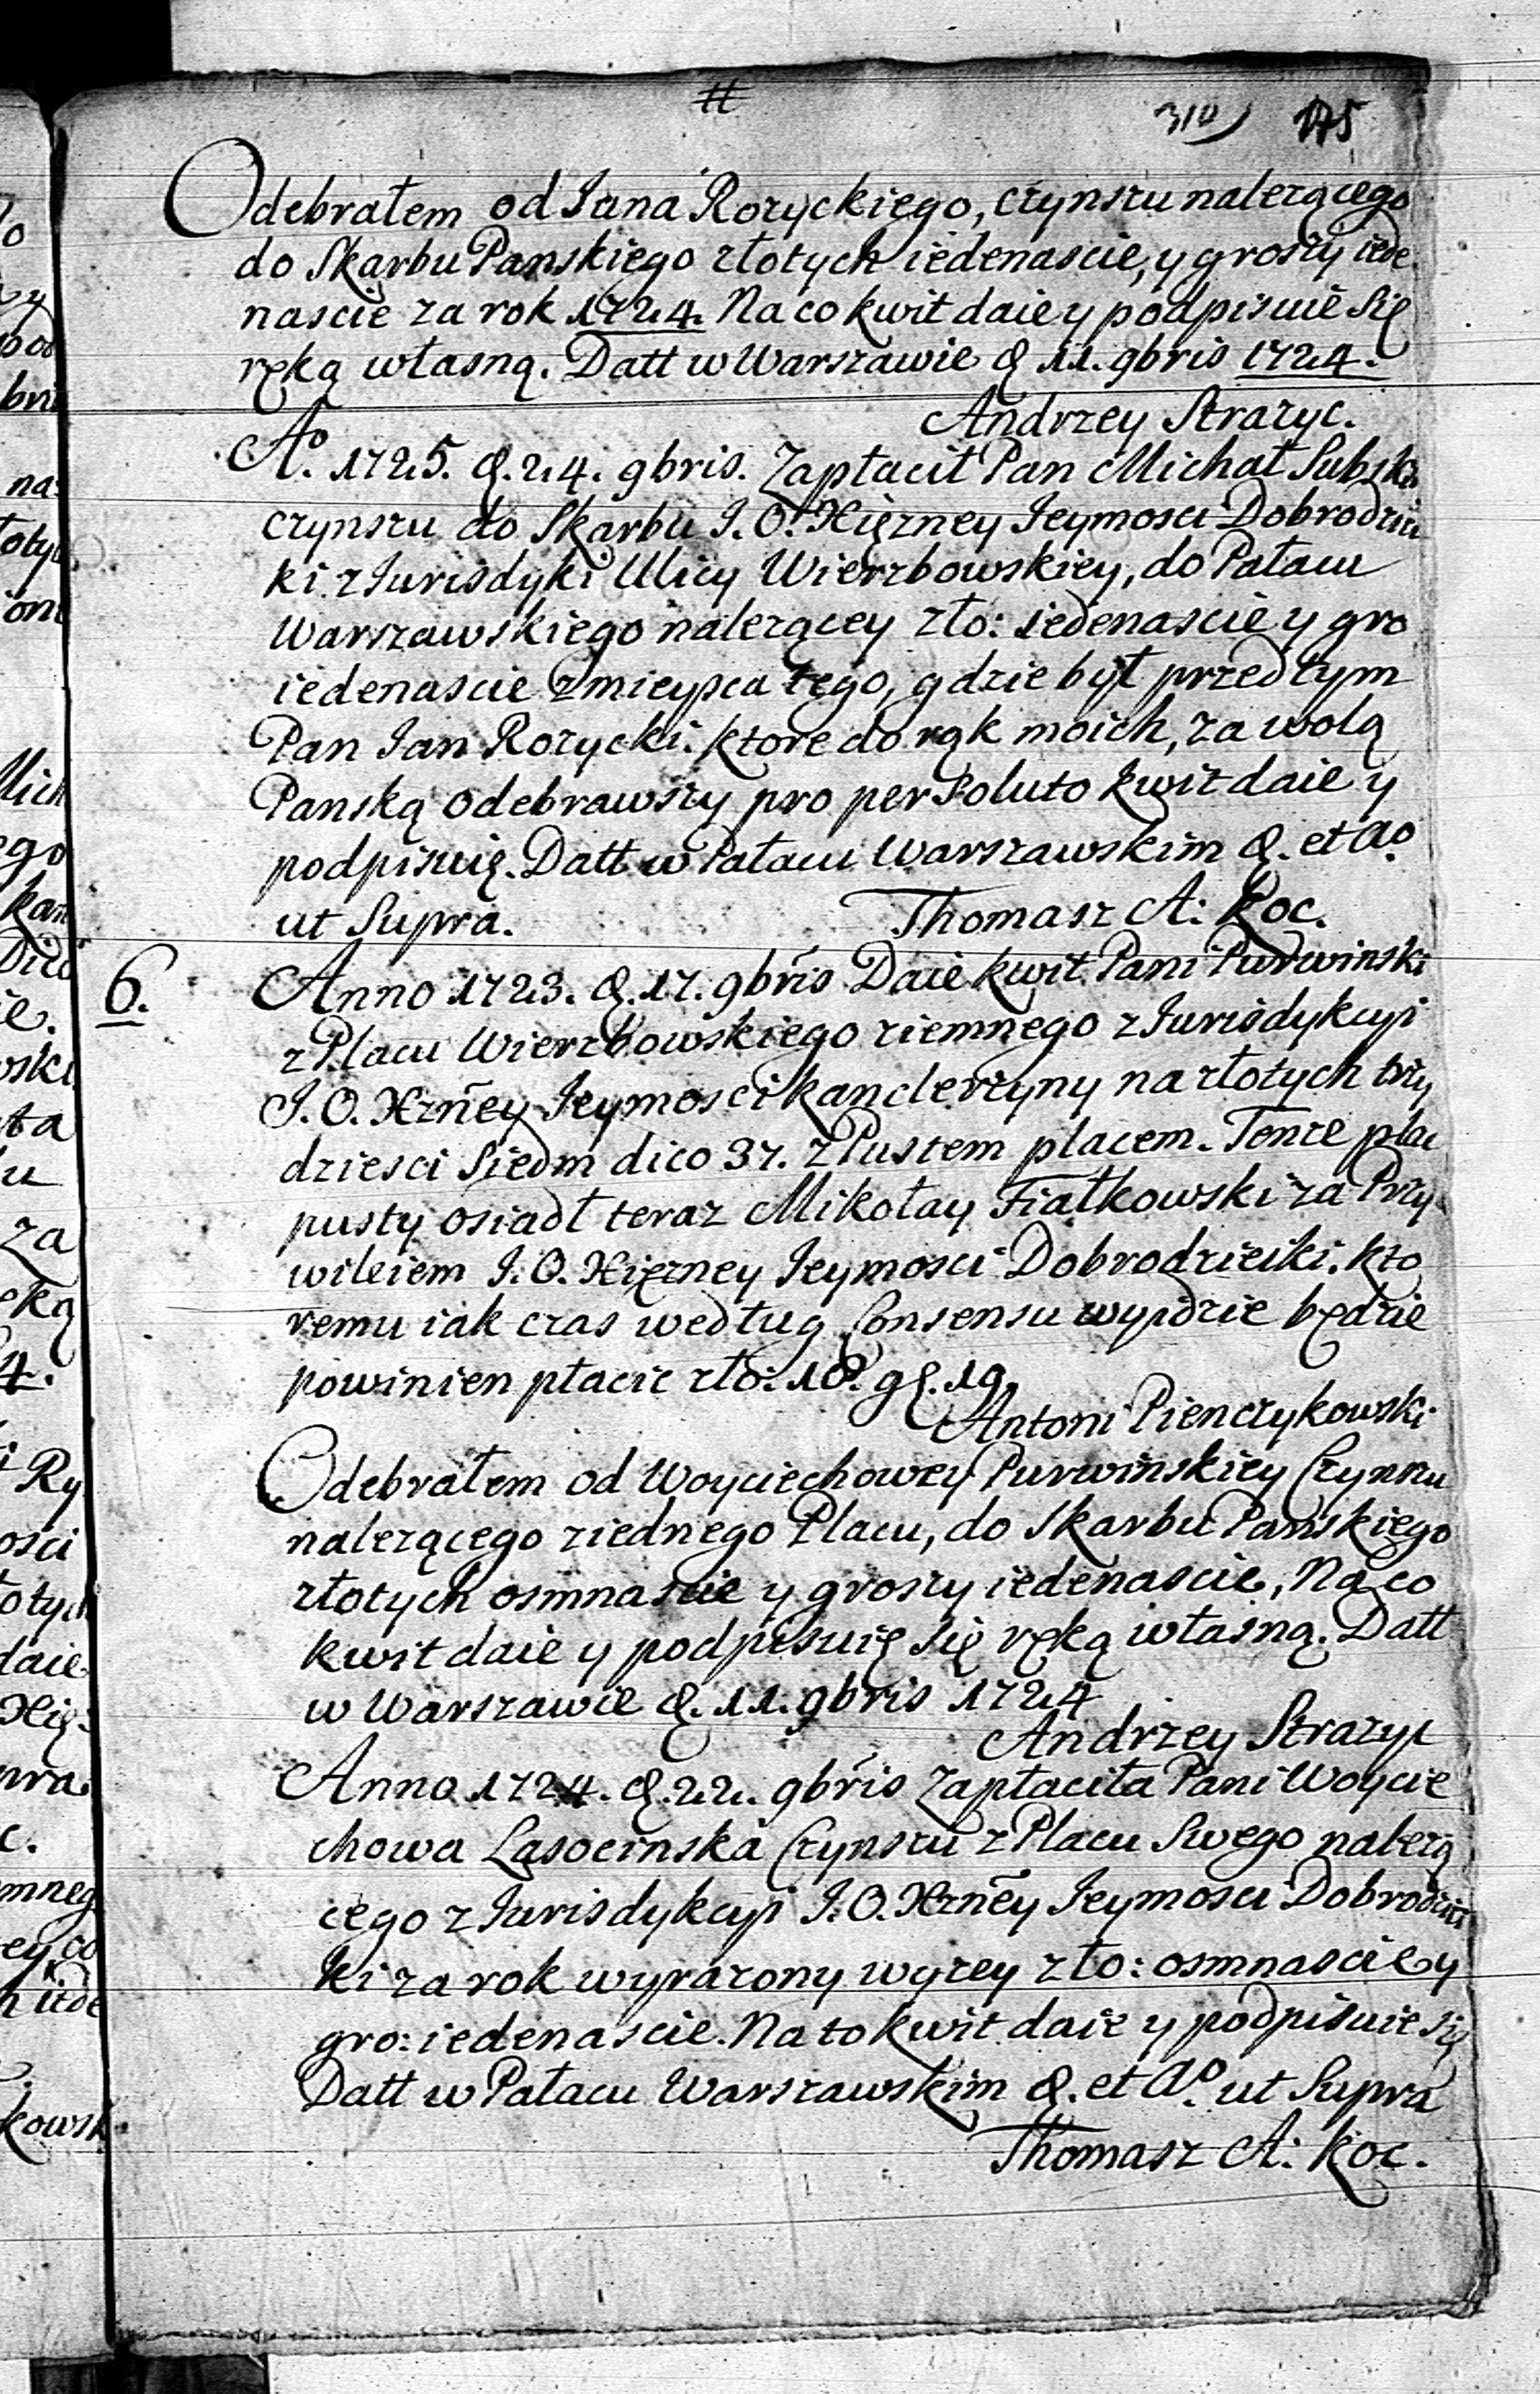 310) 175
Odebrałem od Jana Rozyckiego, czynszu nalezącego
do Skarbu Panskiego złotych iedenascie, y groszy iede
nascie za rok 1724. Na co kwit daie y podpisuie Się
ręką własną. Datt w Warszawie d 11. 9bris 1724.
Andrzey Strazyc.
Ao. 1725. d. 24. 9bris. Zapłacił Pan Michał Subski
czynszu do Skarbu J. O. Xięzney Jeymosci Dobrodziei
ki z Jurisdyki Ulicy Wierzbowskiey, do Pałacu
Warszawskiego nalezącey zło: iedenascie y gro
iedenascie z mieysca tego, gdzie był przed tym
Pan Jan Rozycki. ktore do rąk moich, za wolą
Panską odebrawszy pro persoluto kwit daie y
podpisuię. Datt w Pałacu Warszawskim d. et ao.
ut Supra. Thomasz A: Koc.
6. Anno 1723. d. 17. 9bris Daie kwit Pani Purwinski
z Placu Wierzbowskiego ziemnego z Jurisdykcyi
J. O. Xzney Jeymosci kanclerzyny na złotych trzy
dziesci Siedm dico 37. z Pustem placem. Tenze plac
pusty osiadł teraz Mikołay Fiałkowski za Przy
wileiem J. O. Xięzney Jeymosci Dobrodzieiki. kto
remu iak czas według Consensu wyidzie będzie
powinien płacic zło: 18. g. 19.
Antoni Pienczykowski
Odebrałem od Woyciechowey Purwinskiey Czynszu
nalezącego z iednego Placu, do Skarbu Panskiego
złotych osmnascie y groszy iedenascie, Na co
kwit daie y podpisuię Się ręką własną. Datt
w Warszawie d. 11. 9bris 1724
Andrzey Strazyc
Anno 1724. d. 22. 9bris Zapłaciła Pani Woycie
chowa Lasocinska Czynszu z Placu Swego nalezą
cego z Jurisdykcyi J. O. Xzney Jeymosci Dobrodziei
ki za rok wyrazony wyzey zło: osmnascie y
gro: iedenascie. Na to kwit daie y podpisuie się
Datt w Pałacu Warszawskim d. et Ao. ut Supra
Thomasz A: Koc.